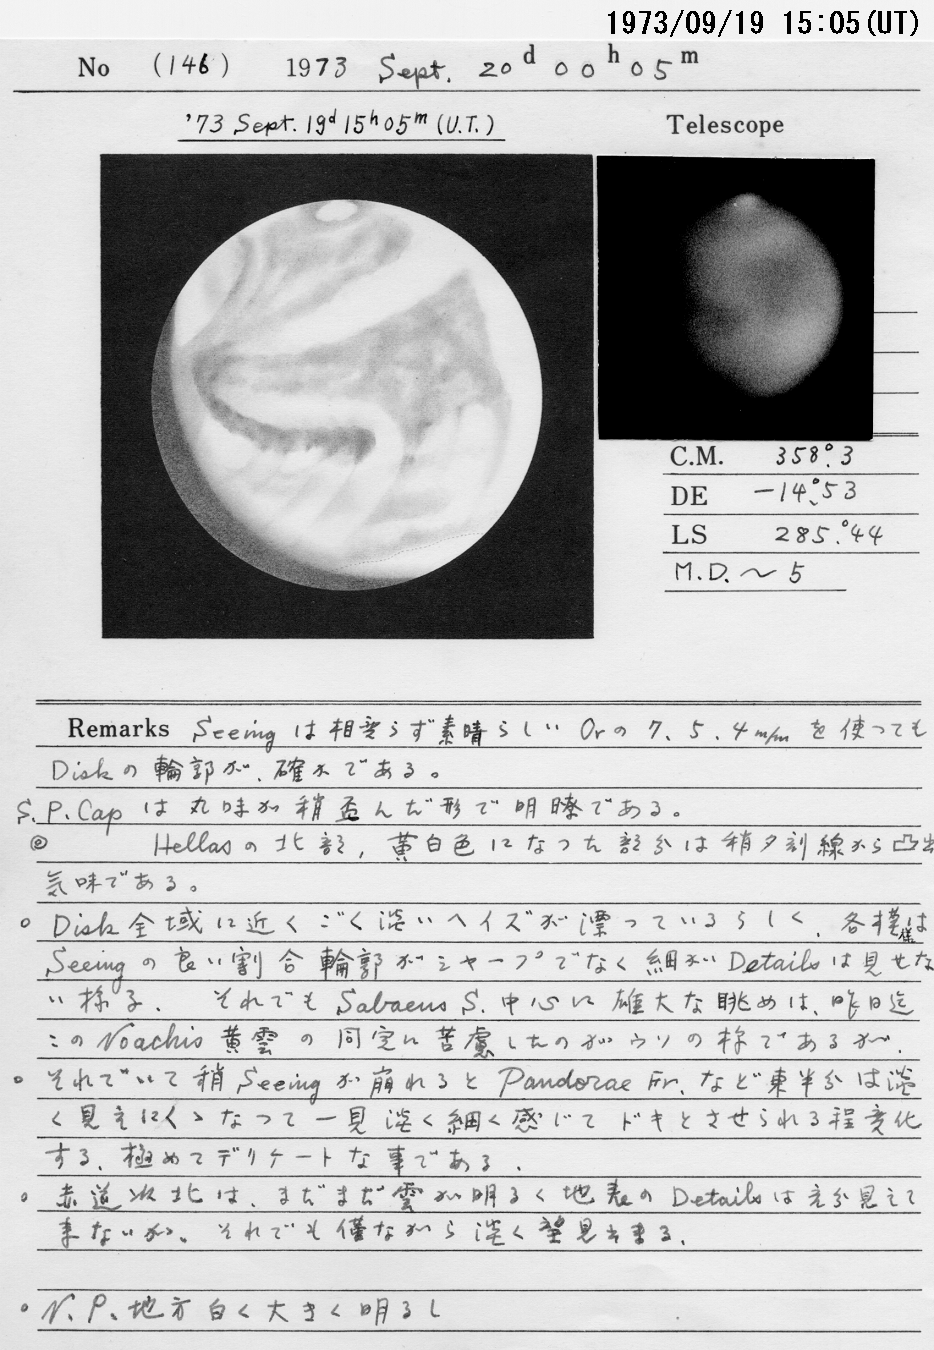 1973/09/19 15:05(UT)
No (146) 1973 Sept. 20d 00h 05m
'73 Sept. 19d 15h 05m (U.T.)
Telescope
C.M. 358°.3
DE -14°.53
LS 285.°44
M.D. ~ 5
Remarks Seeingは相変らず素晴らしい Orの7、5、4m/mを使っても
Diskの輪郭が、確かである。
S.P.Capは丸味が稍歪んだ形で明瞭である。
◎ Hellasの北部, 黄白色になった部分は稍夕刻線から凸出
気味である。
○ Disk全域に近くごく淡いヘイズが漂っているらしく、各模様は
Seeingの良い割合輪郭がシャープでなく細かいDetailsは見せな
い様子、それでもSabaeus S.中心に雄大な眺めは、昨日迄
このNoachis黄雲の同定に苦慮したのがウソの様であるが、
○ それでいて稍Seeingが崩れるとPandorae Fr.など東半分は淡
く見えにくゝなって一見淡く細く感じてドキとさせられる程変化
する、極めてデリケートな事である、
○ 赤道以北は、まだまだ雲が明るく地表のDetailsは充分見えて
来ないが、それでも僅ながら淡く発見出来る、
○ N.P.地方白く大きく明るし